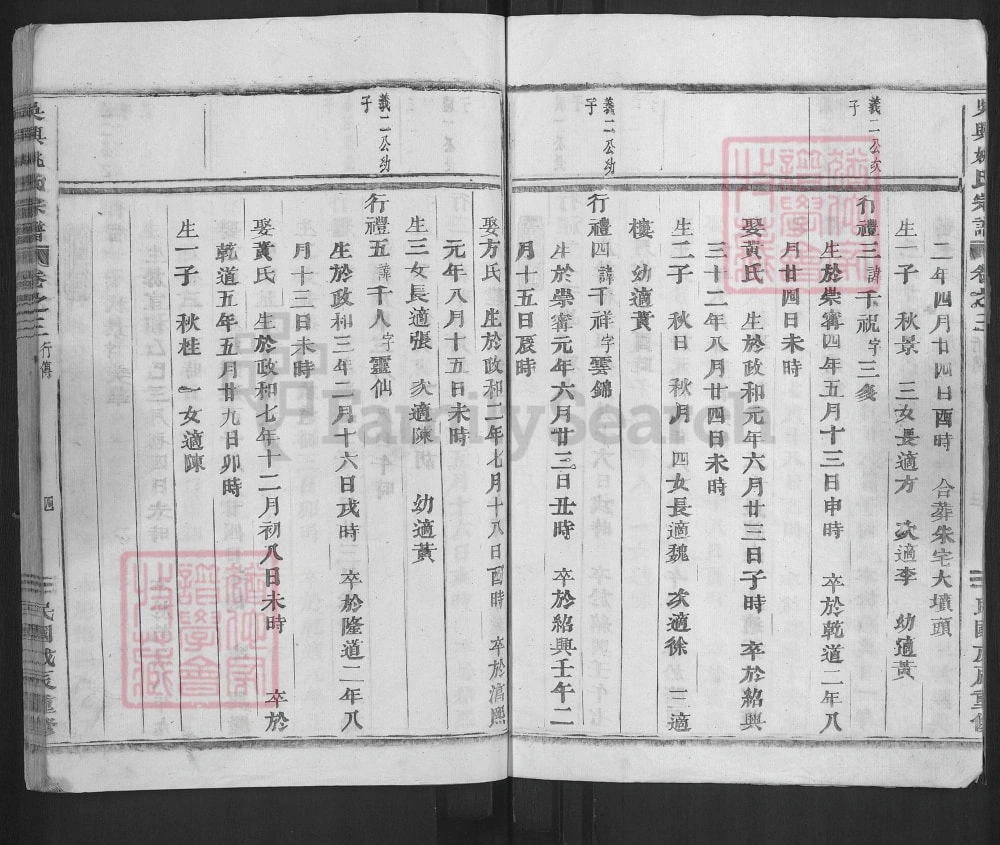 二年四月廿四日酉時 合葬朱宅大墳頭
生一子 秋景 三女長適方 次適李 幼適黃
義二公次子
行禮三諱千祝字三
生於崇寧四年五月十三日申時 卒於乾道二年八
月廿四日未時
娶黃氏 生於政和元年六月廿三日子時 卒於紹興
三十二年八月廿四日未時
生二子 秋日 秋月 四女長適魏 次適徐 三適
樓 幼適黃
義二公幼子
行禮四諱千祥字雲錦
生於崇寧元年六月廿三日丑時 卒於紹興壬午二
月十五日辰時
娶方氏 生於政和二年七月十八日酉時 卒於淳熙
元年八月十五日未時
生三女長適張 次適陳 幼適黃
義二公幼子
行禮五諱千人字靈仙
生於政和三年二月十六日戌時 卒於隆道二年八
月十三日未時
娶黃氏 生於政和七年十二月初八日未時 卒於
乾道五年五月廿九日卯時
生一子 秋桂 一女適陳
吳興姚氏宗譜 卷之三 行傳 四 民國戊辰重修
FamilySearch